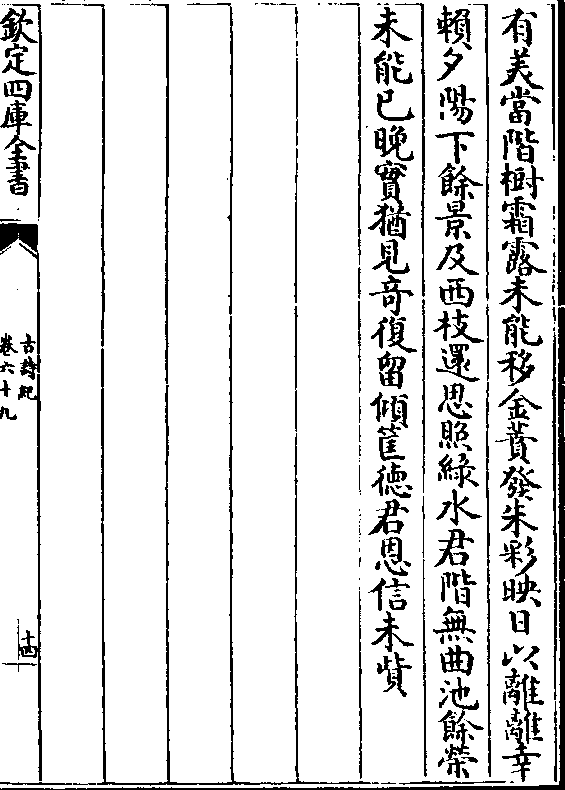 有美當階樹霜露未能移金蕡發朱彩映日以離離幸
頼夕陽下餘景及西枝還思照綠水君階無曲池餘榮
未能已晚實猶見奇復留傾筐德君恩信未貲
欽定四庫全書
古詩紀
卷六十九
十四